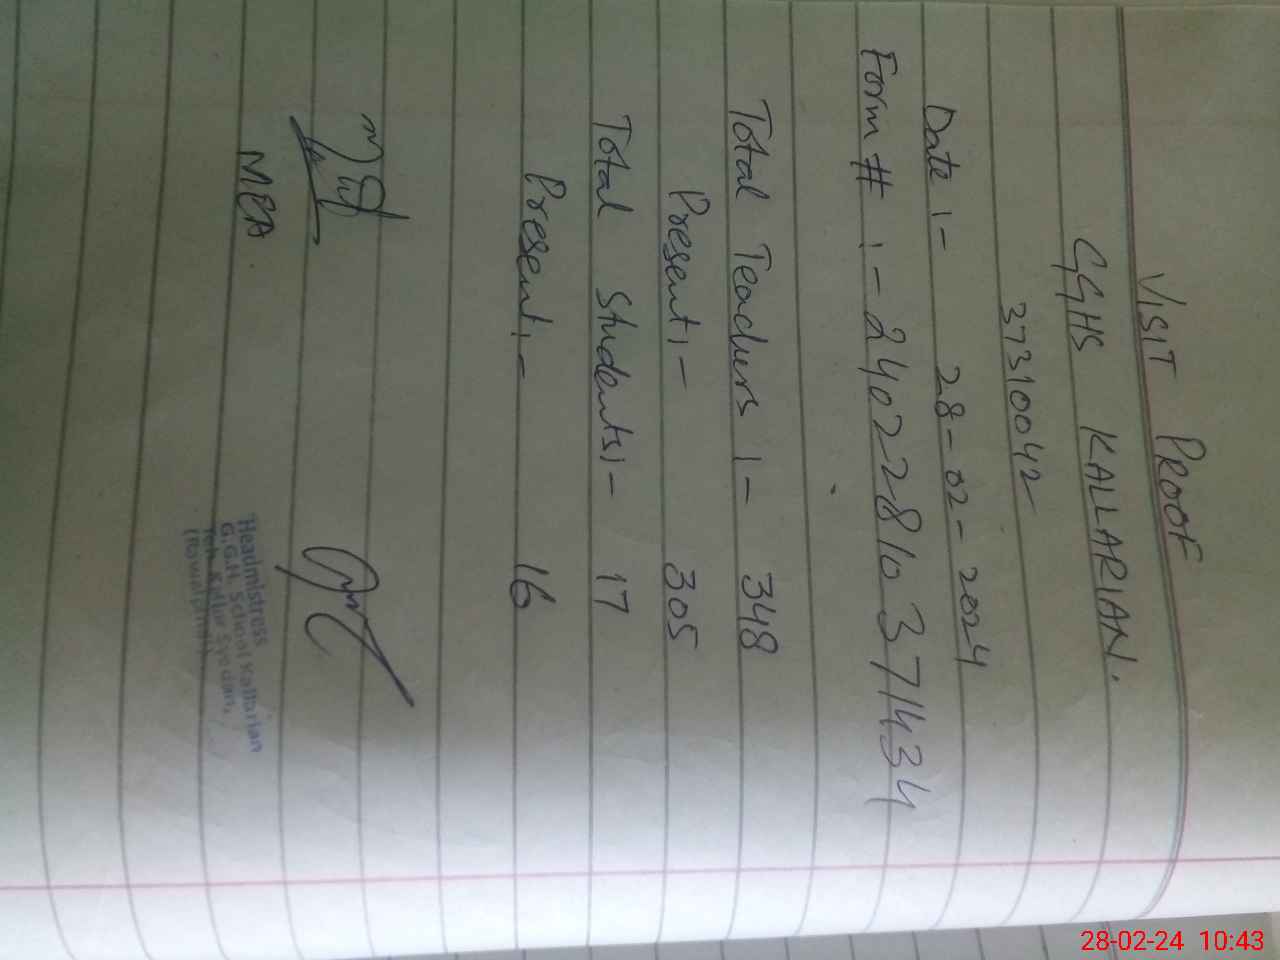 VISIT PROOF
GGHS KALLARIAN.
37310042
Date :- 28-02-2024
Form # :- 24022810371434
Total Teachers :- 348
Present :- 305
Total Students :- 17
Present :- 16
MEA
Headmistress
G.G.H. School Kallarian
Teh. Kallar Syedan,
(Rawalpindi)
28-02-24 10:43